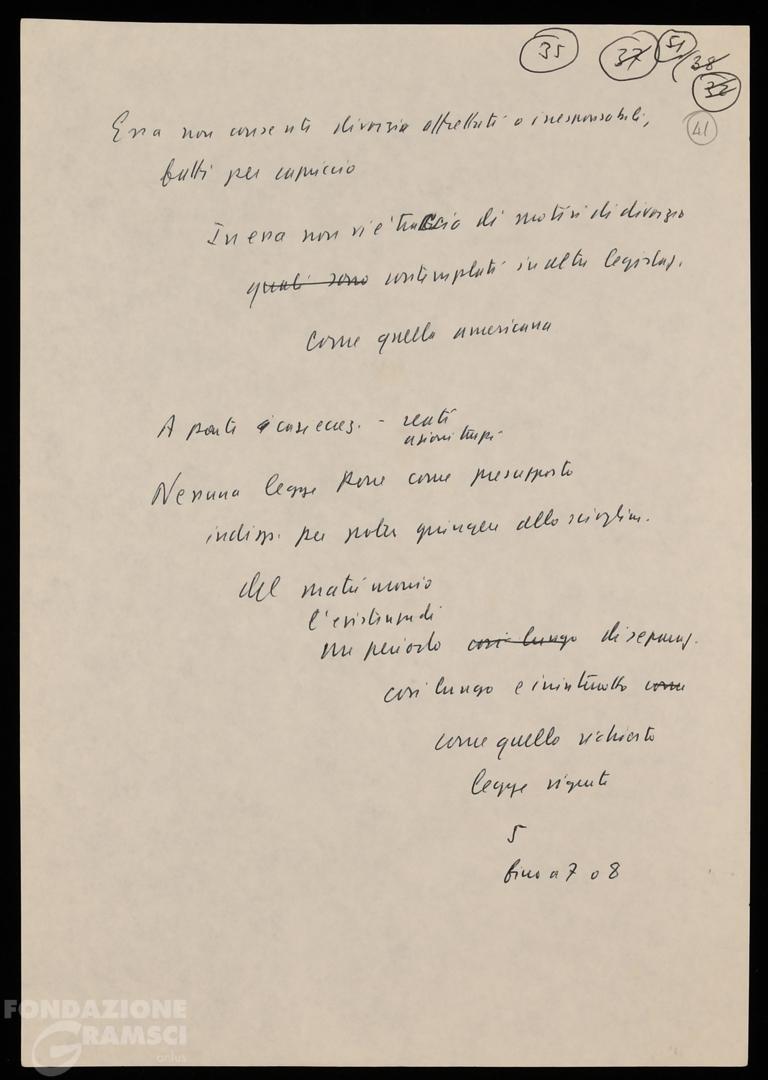 35 37 51 38 32
41
Essa non consente divorzi affrettati o irresponsabili,
fatti per capriccio
In essa non vi è traccia di motivi di divorzio
quali sono contemplati in altre legislaz.
come quella americana
A parte casi eccez. - reati
Nessuna legge pone come presupposto
indisp. per poter giungere allo scioglim.
del matrimonio
l'esistenza di
un periodo così lungo di separaz.
così lungo e ininterrotto come
come quello richiesto
legge vigente
5
fino a 7 o 8
FONDAZIONE
GRAMSCI
onlus